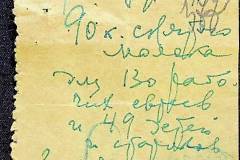 90 к. снятого
молока
для 130 рабо-
чих евреев
и 49 детей
и стариков